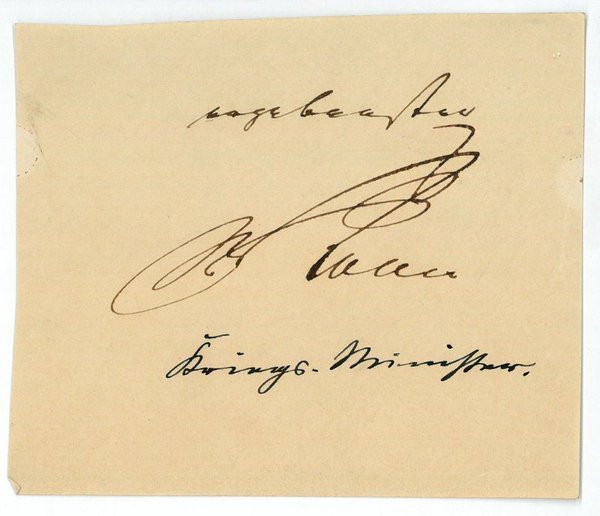 ergebenster
v Roon
Kriegs-Minister.